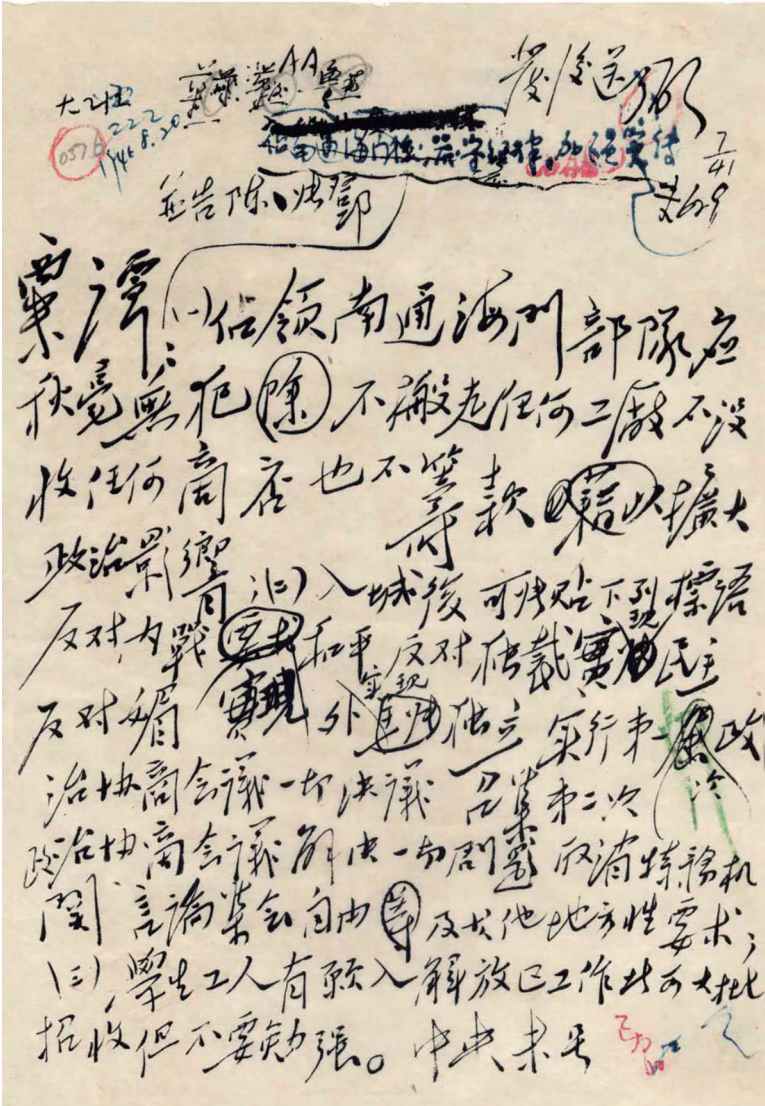 發後送
AA
0576
222
1946.8.20
7/41
並告陈、張鄧
粟譚：(一)佔領南通海門部隊应
秋毫無犯除不搬走任何工廠不没
收任何商店也不籌款藉此擴大
政治影響；(二)入城後可張貼下列標語
反对内戰实現和平反对独裁实現民主
反对媚外实現独立实行第一届政
治协商会議一切决議召集第二次
政治协商会議解决一切问题取消特務机
関言論集会自由等及其他地方性要求；
(三)學生工人有願入解放区工作者可大批
招收但不要勉强。中央未号